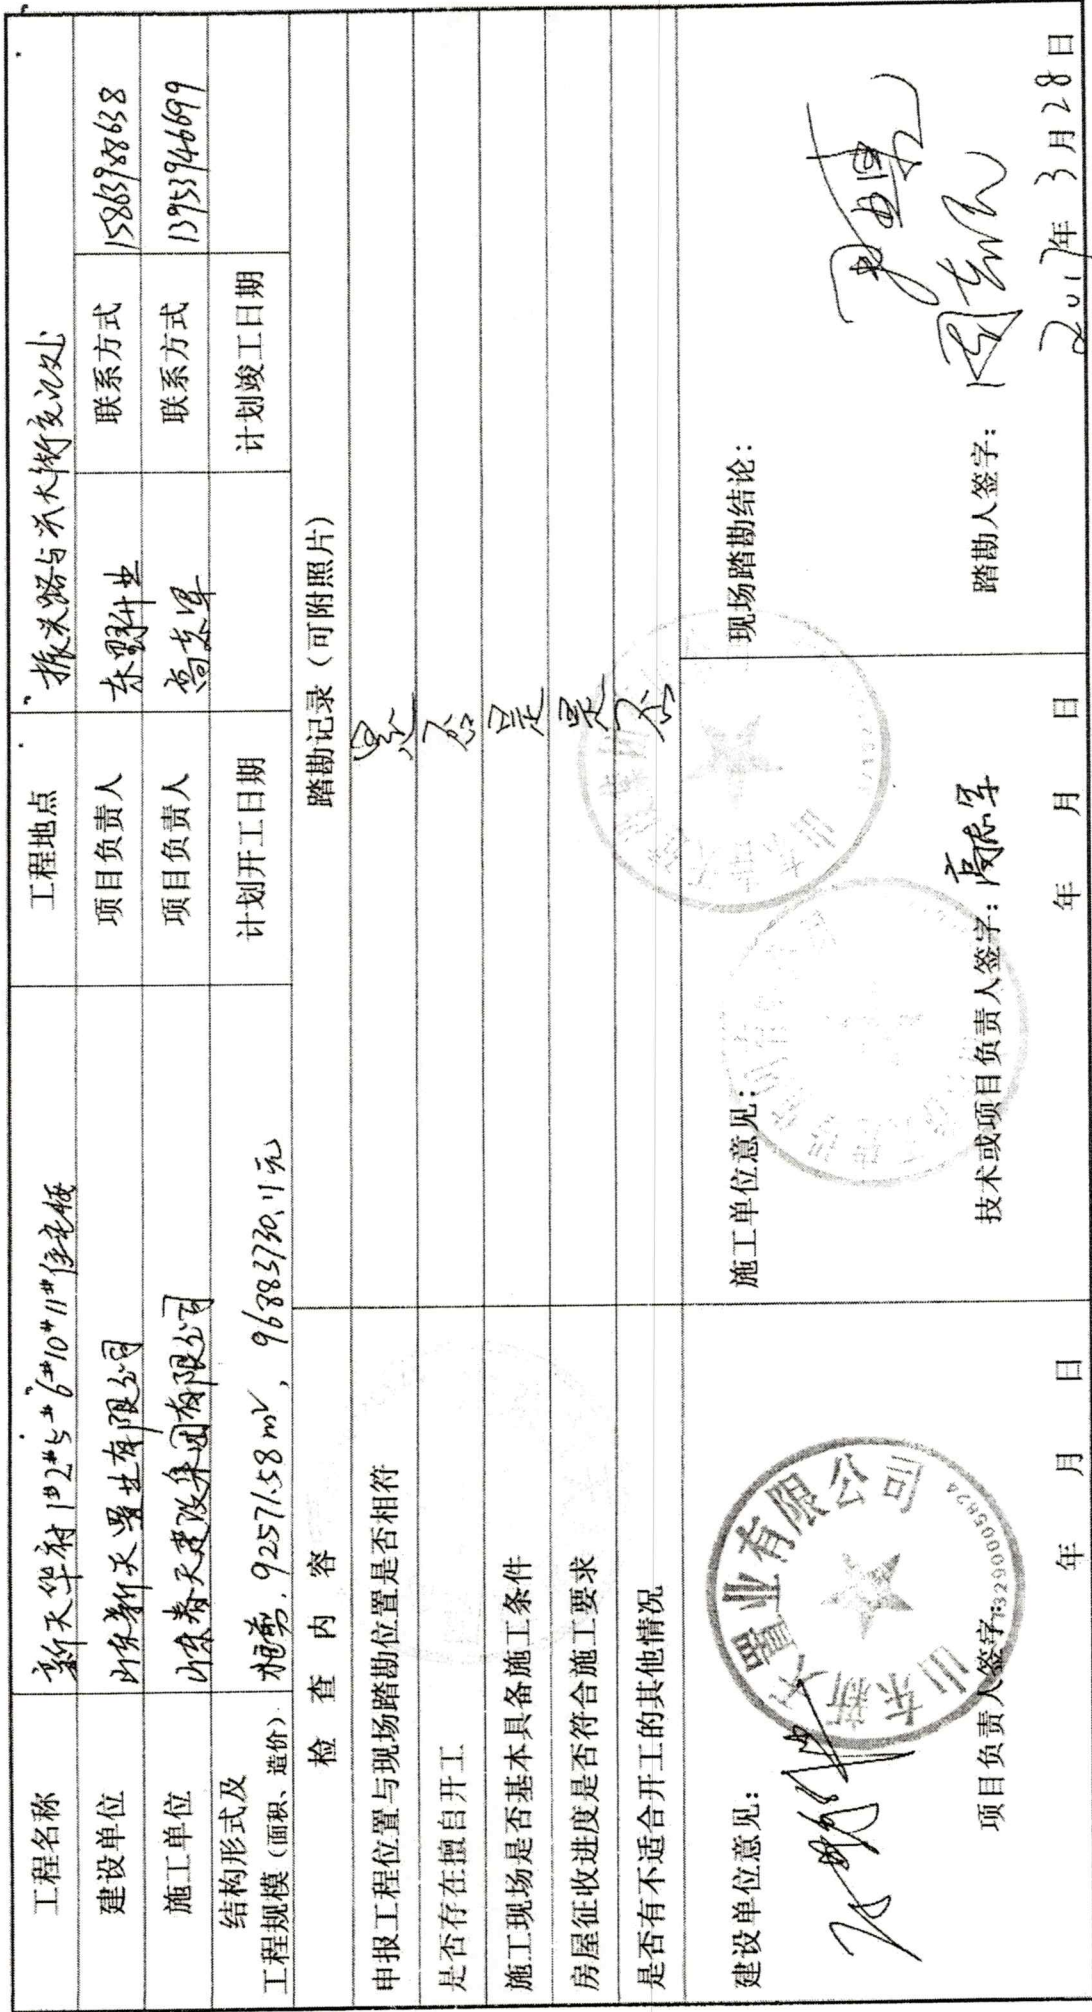 工程名称 新天华府1#2#5#6#10#11#住宅楼 工程地点 振兴路与兴大街交汇处
建设单位 山东新天置业有限公司 项目负责人 联系方式 15863988638
施工单位 山东春天建设集团有限公司 项目负责人 高志军 联系方式 13953946699
结构形式及
工程规模(面积、造价) 92571.58m², 96883730.11元 计划开工日期 计划竣工日期
检 查 内 容 踏勘记录(可附照片)
申报工程位置与现场踏勘位置是否相符 是
是否存在擅自开工 否
施工现场是否基本具备施工条件 是
房屋征收进度是否符合施工要求 是
是否有不适合开工的其他情况 否
建设单位意见:
山东新天置业有限公司
项目负责人签字:
年 月 日
施工单位意见:
技术或项目负责人签字:高志军
年 月 日
现场踏勘结论:
踏勘人签字:
2017年 3月28日